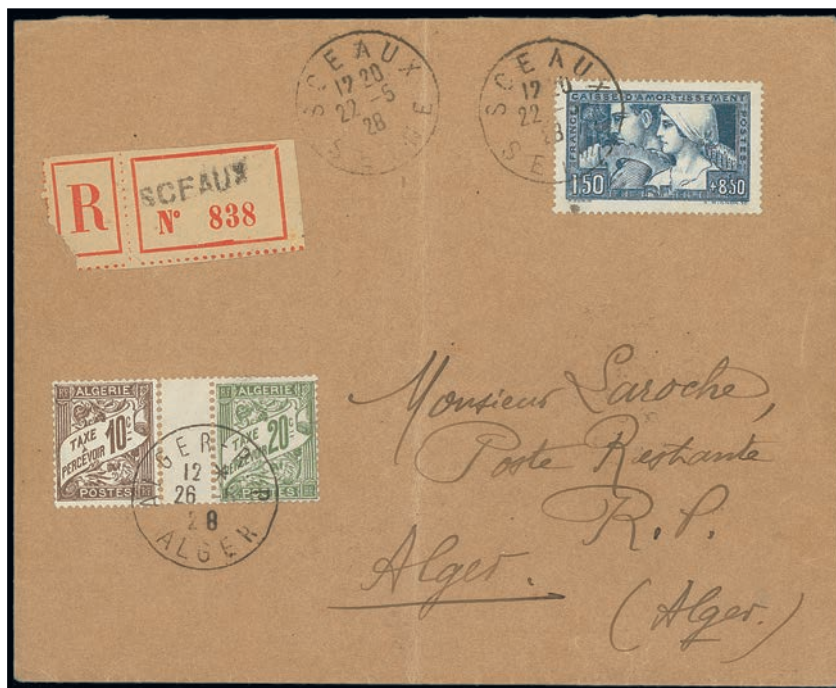 SCEAUX
17 20
22 - 5
28
SEINE
SCEAUX
22
SE
CAISSE D'AMORTISSEMENT
FRANCE
POSTES
1,50
+8,50
R
SCEAUX
N° 838
ALGERIE
TAXE
PERCEVOIR
10c
POSTES
ALGERIE
TAXE
PERCEVOIR
20c
POSTES
ALGER R.P
12
26
28
ALGER
Monsieur Laroche,
Poste Restante
R. P.
Alger.
(Alger.)